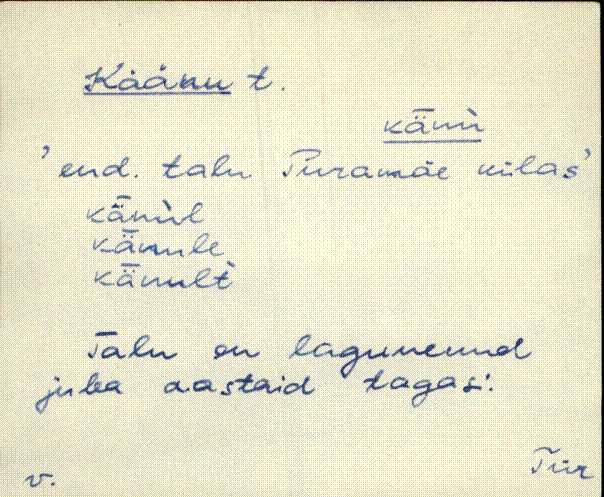 Käänu t.
kǟnù
'end. talu Piiramäe külas'
kǟnùl
kǟnule
kǟnulť
Talu on lagunenud
juba aastaid tagasi.
v. Tür